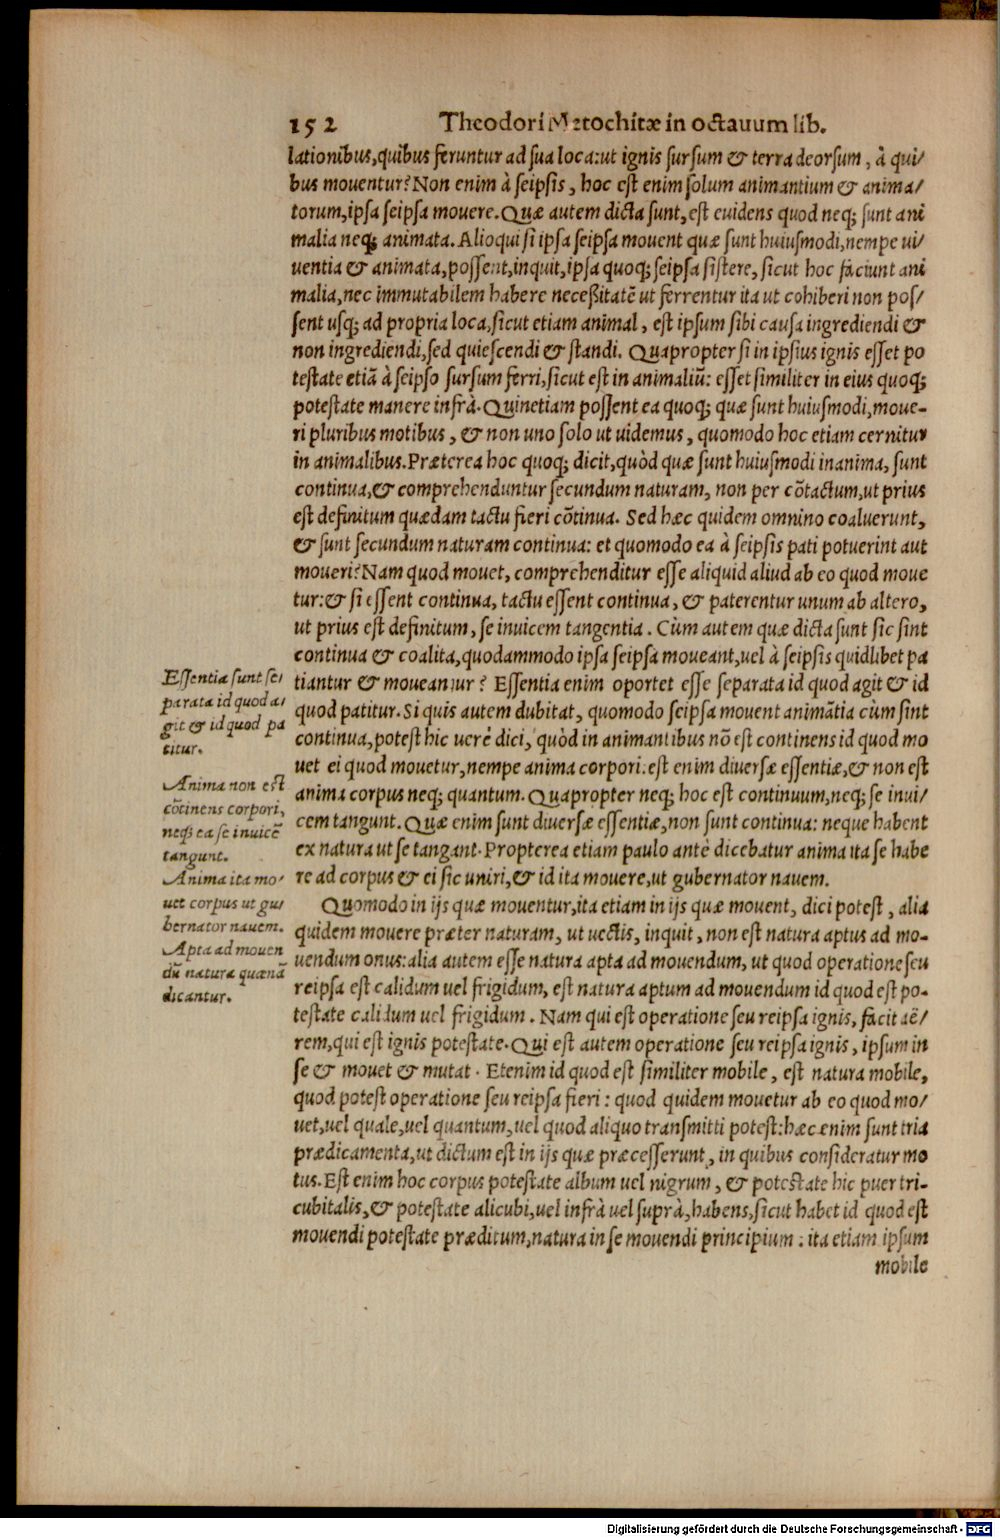 152 Theodori Metochitæ in octauum lib.
lationibus,quibus feruntur ad sua loca:ut ignis sursum & terra deorsum, à qui/
bus mouentur? Non enim à seipsis, hoc est enim solum animantium & anima/
torum,ipsa seipsa mouere. Quæ autem dicta sunt,est euidens quod neq; sunt ani
malia neq; animata. Alioqui si ipsa seipsa mouent quæ sunt huiusmodi,nempe ui/
uentia & animata,possent,inquit,ipsa quoq; seipsa sistere, sicut hoc faciunt ani
malia,nec immutabilem habere necessitatẽ ut ferrentur ita ut cohiberi non pos/
sent usq; ad propria loca,sicut etiam animal, est ipsum sibi causa ingrediendi &
non ingrediendi,sed quiescendi & standi. Quapropter si in ipsius ignis esset po
testate etiã à seipso sursum ferri,sicut est in animaliũ: esset similiter in eius quoq;
potestate manere infrà. Quinetiam possent ea quoq; quæ sunt huiusmodi,moue-
ri pluribus motibus, & non uno solo ut uidemus, quomodo hoc etiam cernitur
in animalibus. Præterea hoc quoq; dicit,quòd quæ sunt huiusmodi inanima, sunt
continua,& comprehenduntur secundum naturam, non per cõtactum,ut prius
est definitum quædam tactu fieri cõtinua. Sed hæc quidem omnino coaluerunt,
& sunt secundum naturam continua: et quomodo ea à seipsis pati potuerint aut
moueri? Nam quod mouet, comprehenditur esse aliquid aliud ab eo quod moue
tur:& si essent continua, tactu essent continua, & paterentur unum ab altero,
ut prius est definitum, se inuicem tangentia. Cùm autem quæ dicta sunt sic sint
continua & coalita,quodammodo ipsa seipsa moueant,uel à seipsis quidlibet pa
tiantur & moueantur? Essentia enim oportet esse separata id quod agit & id
quod patitur. Si quis autem dubitat, quomodo seipsa mouent animãtia cùm sint
continua,potest hic uerè dici, quòd in animantibus nõ est continens id quod mo
uet ei quod mouetur,nempe anima corpori:est enim diuersæ essentiæ,& non est
anima corpus neq; quantum. Quapropter neq; hoc est continuum,neq; se inui/
cem tangunt. Quæ enim sunt diuersæ essentiæ,non sunt continua: neque habent
ex natura ut se tangant. Propterea etiam paulo antè dicebatur anima ita se habe
re ad corpus & ei sic uniri,& id ita mouere,ut gubernator nauem.
Quomodo in ijs quæ mouentur,ita etiam in ijs quæ mouent, dici potest, alia
quidem mouere præter naturam, ut uectis, inquit, non est natura aptus ad mo-
uendum onus:alia autem esse natura apta ad mouendum, ut quod operatione seu
reipsa est calidum uel frigidum, est natura aptum ad mouendum id quod est po-
testate calidum uel frigidum. Nam qui est operatione seu reipsa ignis, facit aë/
rem,qui est ignis potestate. Qui est autem operatione seu reipsa ignis, ipsum in
se & mouet & mutat. Etenim id quod est similiter mobile, est natura mobile,
quod potest operatione seu reipsa fieri: quod quidem mouetur ab eo quod mo/
uet,uel quale,uel quantum,uel quod aliquo transmitti potest:hæc enim sunt tria
prædicamenta,ut dictum est in ijs quæ præcesserunt, in quibus consideratur mo
tus. Est enim hoc corpus potestate album uel nigrum, & potestate hic puer tri-
cubitalis,& potestate alicubi,uel infrà uel suprà,habens,sicut habet id quod est
mouendi potestate præditum,natura in se mouendi principium: ita etiam ipsum
mobile
Essentia sunt se/
parata id quod a/
git & id quod pa
titur.
Anima non est
cõtinens corpori,
neq; ea se inuicẽ
tangunt.
Anima ita mo/
uet corpus ut gu/
bernator nauem.
Apta ad mouen
dũ natura quænã
dicantur.
Digitalisierung gefördert durch die Deutsche Forschungsgemeinschaft - DFG